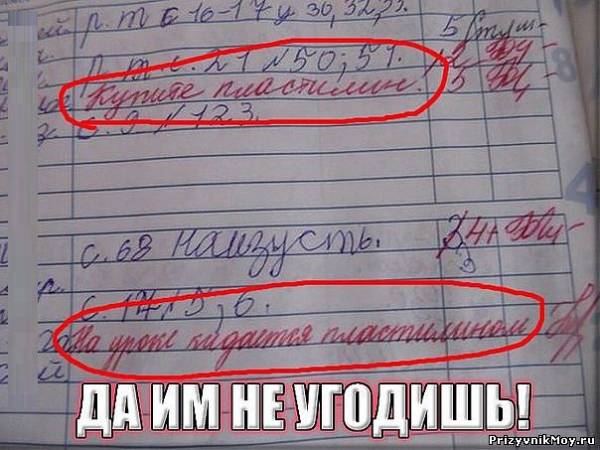 р. т с 16-17 у 30, 32, 33. 5
р. т с. 21 № 50; 51.
Купите пластилин.
с. 9 № 123.
с. 68 наизусть. 4+
с. 17 № 5, 6.
На уроке кидается пластилином
ДА ИМ НЕ УГОДИШЬ!
PrizyvnikMoy.ru